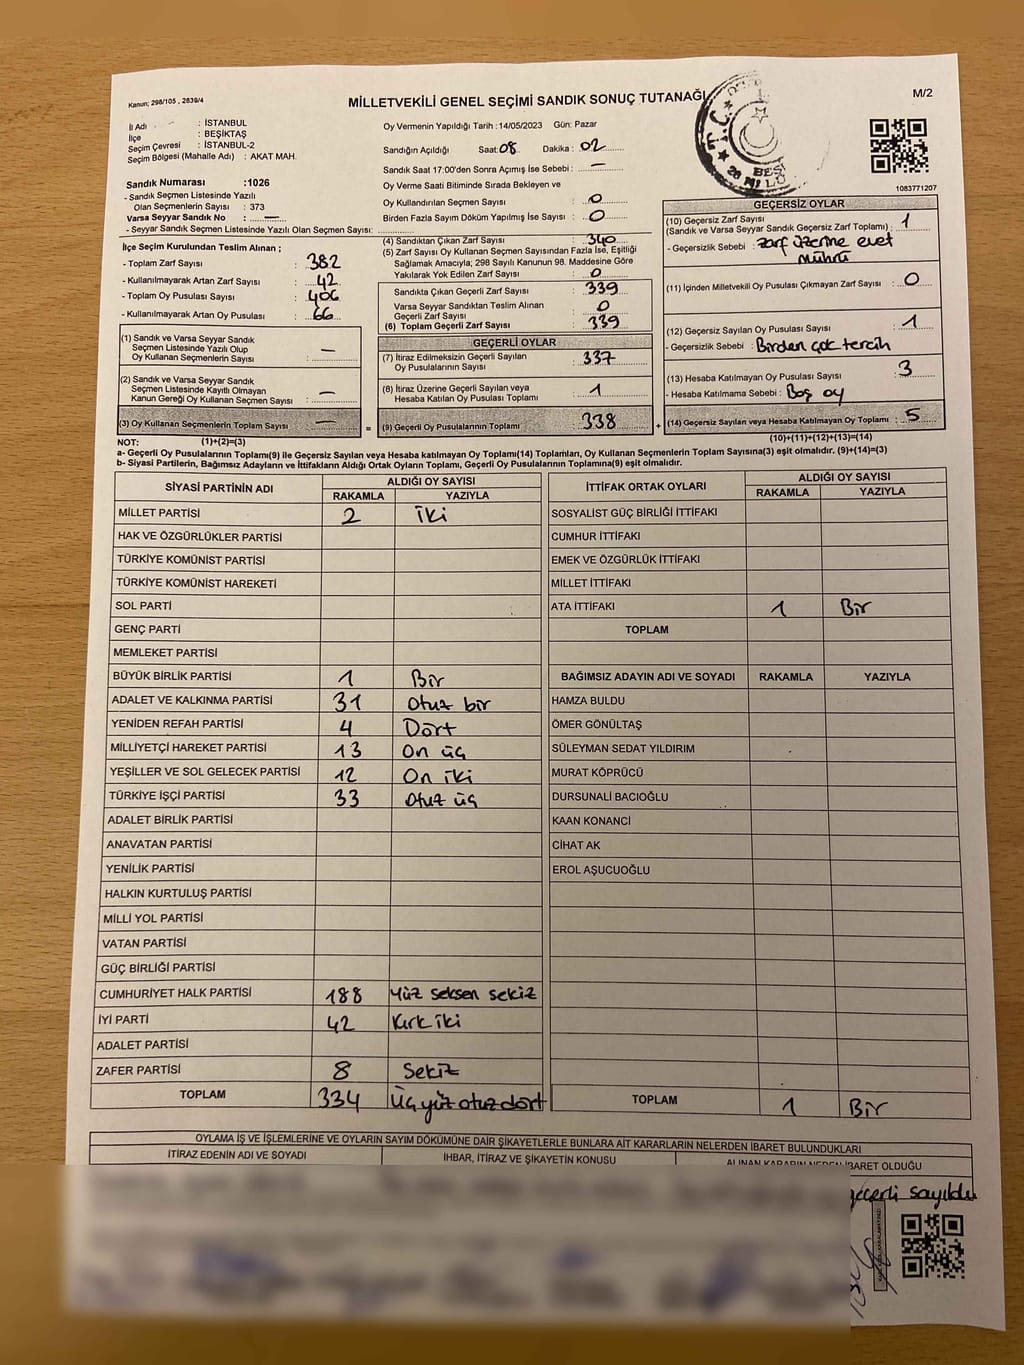 Kanun; 298/105 , 2839/4
MİLLETVEKİLİ GENEL SEÇİMİ SANDIK SONUÇ TUTANAĞI
M/2
İl Adı : İSTANBUL
İlçe : BEŞİKTAŞ
Seçim Çevresi : İSTANBUL-2
Seçim Bölgesi (Mahalle Adı) : AKAT MAH.
Oy Vermenin Yapıldığı Tarih :14/05/2023 Gün: Pazar
Sandığın Açıldığı Saat:08 Dakika : 02
Sandık Saat 17:00'den Sonra Açımış İse Sebebi : —
Oy Verme Saati Bitiminde Sırada Bekleyen ve
Oy Kullandırılan Seçmen Sayısı : 0
Birden Fazla Sayım Döküm Yapılmış İse Sayısı : 0
T.C.
1083771207
Sandık Numarası :1026
- Sandık Seçmen Listesinde Yazılı
Olan Seçmenlerin Sayısı : 373
Varsa Seyyar Sandık No : —
- Seyyar Sandık Seçmen Listesinde Yazılı Olan Seçmen Sayısı:
İlçe Seçim Kurulundan Teslim Alınan ;
- Toplam Zarf Sayısı : 382
- Kullanılmayarak Artan Zarf Sayısı : 42
- Toplam Oy Pusulası Sayısı : 406
- Kullanılmayarak Artan Oy Pusulası : 66
(1) Sandık ve Varsa Seyyar Sandık
Seçmen Listesinde Yazılı Olup
Oy Kullanan Seçmenlerin Sayısı : —
(2) Sandık ve Varsa Seyyar Sandık
Seçmen Listesinde Kayıtlı Olmayan
Kanun Gereği Oy Kullanan Seçmen Sayısı : —
(3) Oy Kullanan Seçmenlerin Toplam Sayısı : —
(4) Sandıktan Çıkan Zarf Sayısı : 340
(5) Zarf Sayısı Oy Kullanan Seçmen Sayısından Fazla İse, Eşitliği
Sağlamak Amacıyla; 298 Sayılı Kanunun 98. Maddesine Göre
Yakılarak Yok Edilen Zarf Sayısı : 0
Sandıkta Çıkan Geçerli Zarf Sayısı : 339
Varsa Seyyar Sandıktan Teslim Alınan
Geçerli Zarf Sayısı : 0
(6) Toplam Geçerli Zarf Sayısı : 339
GEÇERLİ OYLAR
(7) İtiraz Edilmeksizin Geçerli Sayılan
Oy Pusulalarının Sayısı : 337
(8) İtiraz Üzerine Geçerli Sayılan veya
Hesaba Katılan Oy Pusulası Toplamı : 1
= (9) Geçerli Oy Pusulalarının Toplamı : 338 +
GEÇERSİZ OYLAR
(10) Geçersiz Zarf Sayısı
(Sandık ve Varsa Seyyar Sandık Geçersiz Zarf Toplamı) : 1
- Geçersizlik Sebebi : Zarf üzerine evet
mührü
(11) İçinden Milletvekili Oy Pusulası Çıkmayan Zarf Sayısı : 0
(12) Geçersiz Sayılan Oy Pusulası Sayısı : 1
- Geçersizlik Sebebi : Birden çok tercih
(13) Hesaba Katılmayan Oy Pusulası Sayısı : 3
- Hesaba Katılmama Sebebi : Boş oy
(14) Geçersiz Sayılan veya Hesaba Katılmayan Oy Toplamı : 5
NOT: (1)+(2)=(3)
(10)+(11)+(12)+(13)=(14)
a- Geçerli Oy Pusulalarının Toplamı(9) ile Geçersiz Sayılan veya Hesaba katılmayan Oy Toplamı(14) Toplamları, Oy Kullanan Seçmenlerin Toplam Sayısına(3) eşit olmalıdır. (9)+(14)=(3)
b- Siyasi Partilerin, Bağımsız Adayların ve İttifakların Aldığı Ortak Oyların Toplamı, Geçerli Oy Pusulalarının Toplamına(9) eşit olmalıdır.
SİYASİ PARTİNİN ADI ALDIĞI OY SAYISI
RAKAMLA YAZIYLA
MİLLET PARTİSİ 2 İki
HAK VE ÖZGÜRLÜKLER PARTİSİ
TÜRKİYE KOMÜNİST PARTİSİ
TÜRKİYE KOMÜNİST HAREKETİ
SOL PARTİ
GENÇ PARTİ
MEMLEKET PARTİSİ
BÜYÜK BİRLİK PARTİSİ 1 Bir
ADALET VE KALKINMA PARTİSİ 31 Otuz bir
YENİDEN REFAH PARTİSİ 4 Dört
MİLLİYETÇİ HAREKET PARTİSİ 13 On üç
YEŞİLLER VE SOL GELECEK PARTİSİ 12 On iki
TÜRKİYE İŞÇİ PARTİSİ 33 Otuz üç
ADALET BİRLİK PARTİSİ
ANAVATAN PARTİSİ
YENİLİK PARTİSİ
HALKIN KURTULUŞ PARTİSİ
MİLLİ YOL PARTİSİ
VATAN PARTİSİ
GÜÇ BİRLİĞİ PARTİSİ
CUMHURİYET HALK PARTİSİ 188 Yüz seksen sekiz
İYİ PARTİ 42 Kırk iki
ADALET PARTİSİ
ZAFER PARTİSİ 8 Sekiz
TOPLAM 334 Üç yüz otuz dört
İTTİFAK ORTAK OYLARI ALDIĞI OY SAYISI
RAKAMLA YAZIYLA
SOSYALİST GÜÇ BİRLİĞİ İTTİFAKI
CUMHUR İTTİFAKI
EMEK VE ÖZGÜRLÜK İTTİFAKI
MİLLET İTTİFAKI
ATA İTTİFAKI 1 Bir
TOPLAM
BAĞIMSIZ ADAYIN ADI VE SOYADI RAKAMLA YAZIYLA
HAMZA BULDU
ÖMER GÖNÜLTAŞ
SÜLEYMAN SEDAT YILDIRIM
MURAT KÖPRÜCÜ
DURSUNALİ BACIOĞLU
KAAN KONANCİ
CİHAT AK
EROL AŞUCUOĞLU
TOPLAM 1 Bir
OYLAMA İŞ VE İŞLEMLERİNE VE OYLARIN SAYIM DÖKÜMÜNE DAİR ŞİKAYETLERLE BUNLARA AİT KARARLARIN NELERDEN İBARET BULUNDUKLARI
İTİRAZ EDENİN ADI VE SOYADI İHBAR, İTİRAZ VE ŞİKAYETİN KONUSU ALINAN KARARIN NEDEN İBARET OLDUĞU
geçerli sayıldı